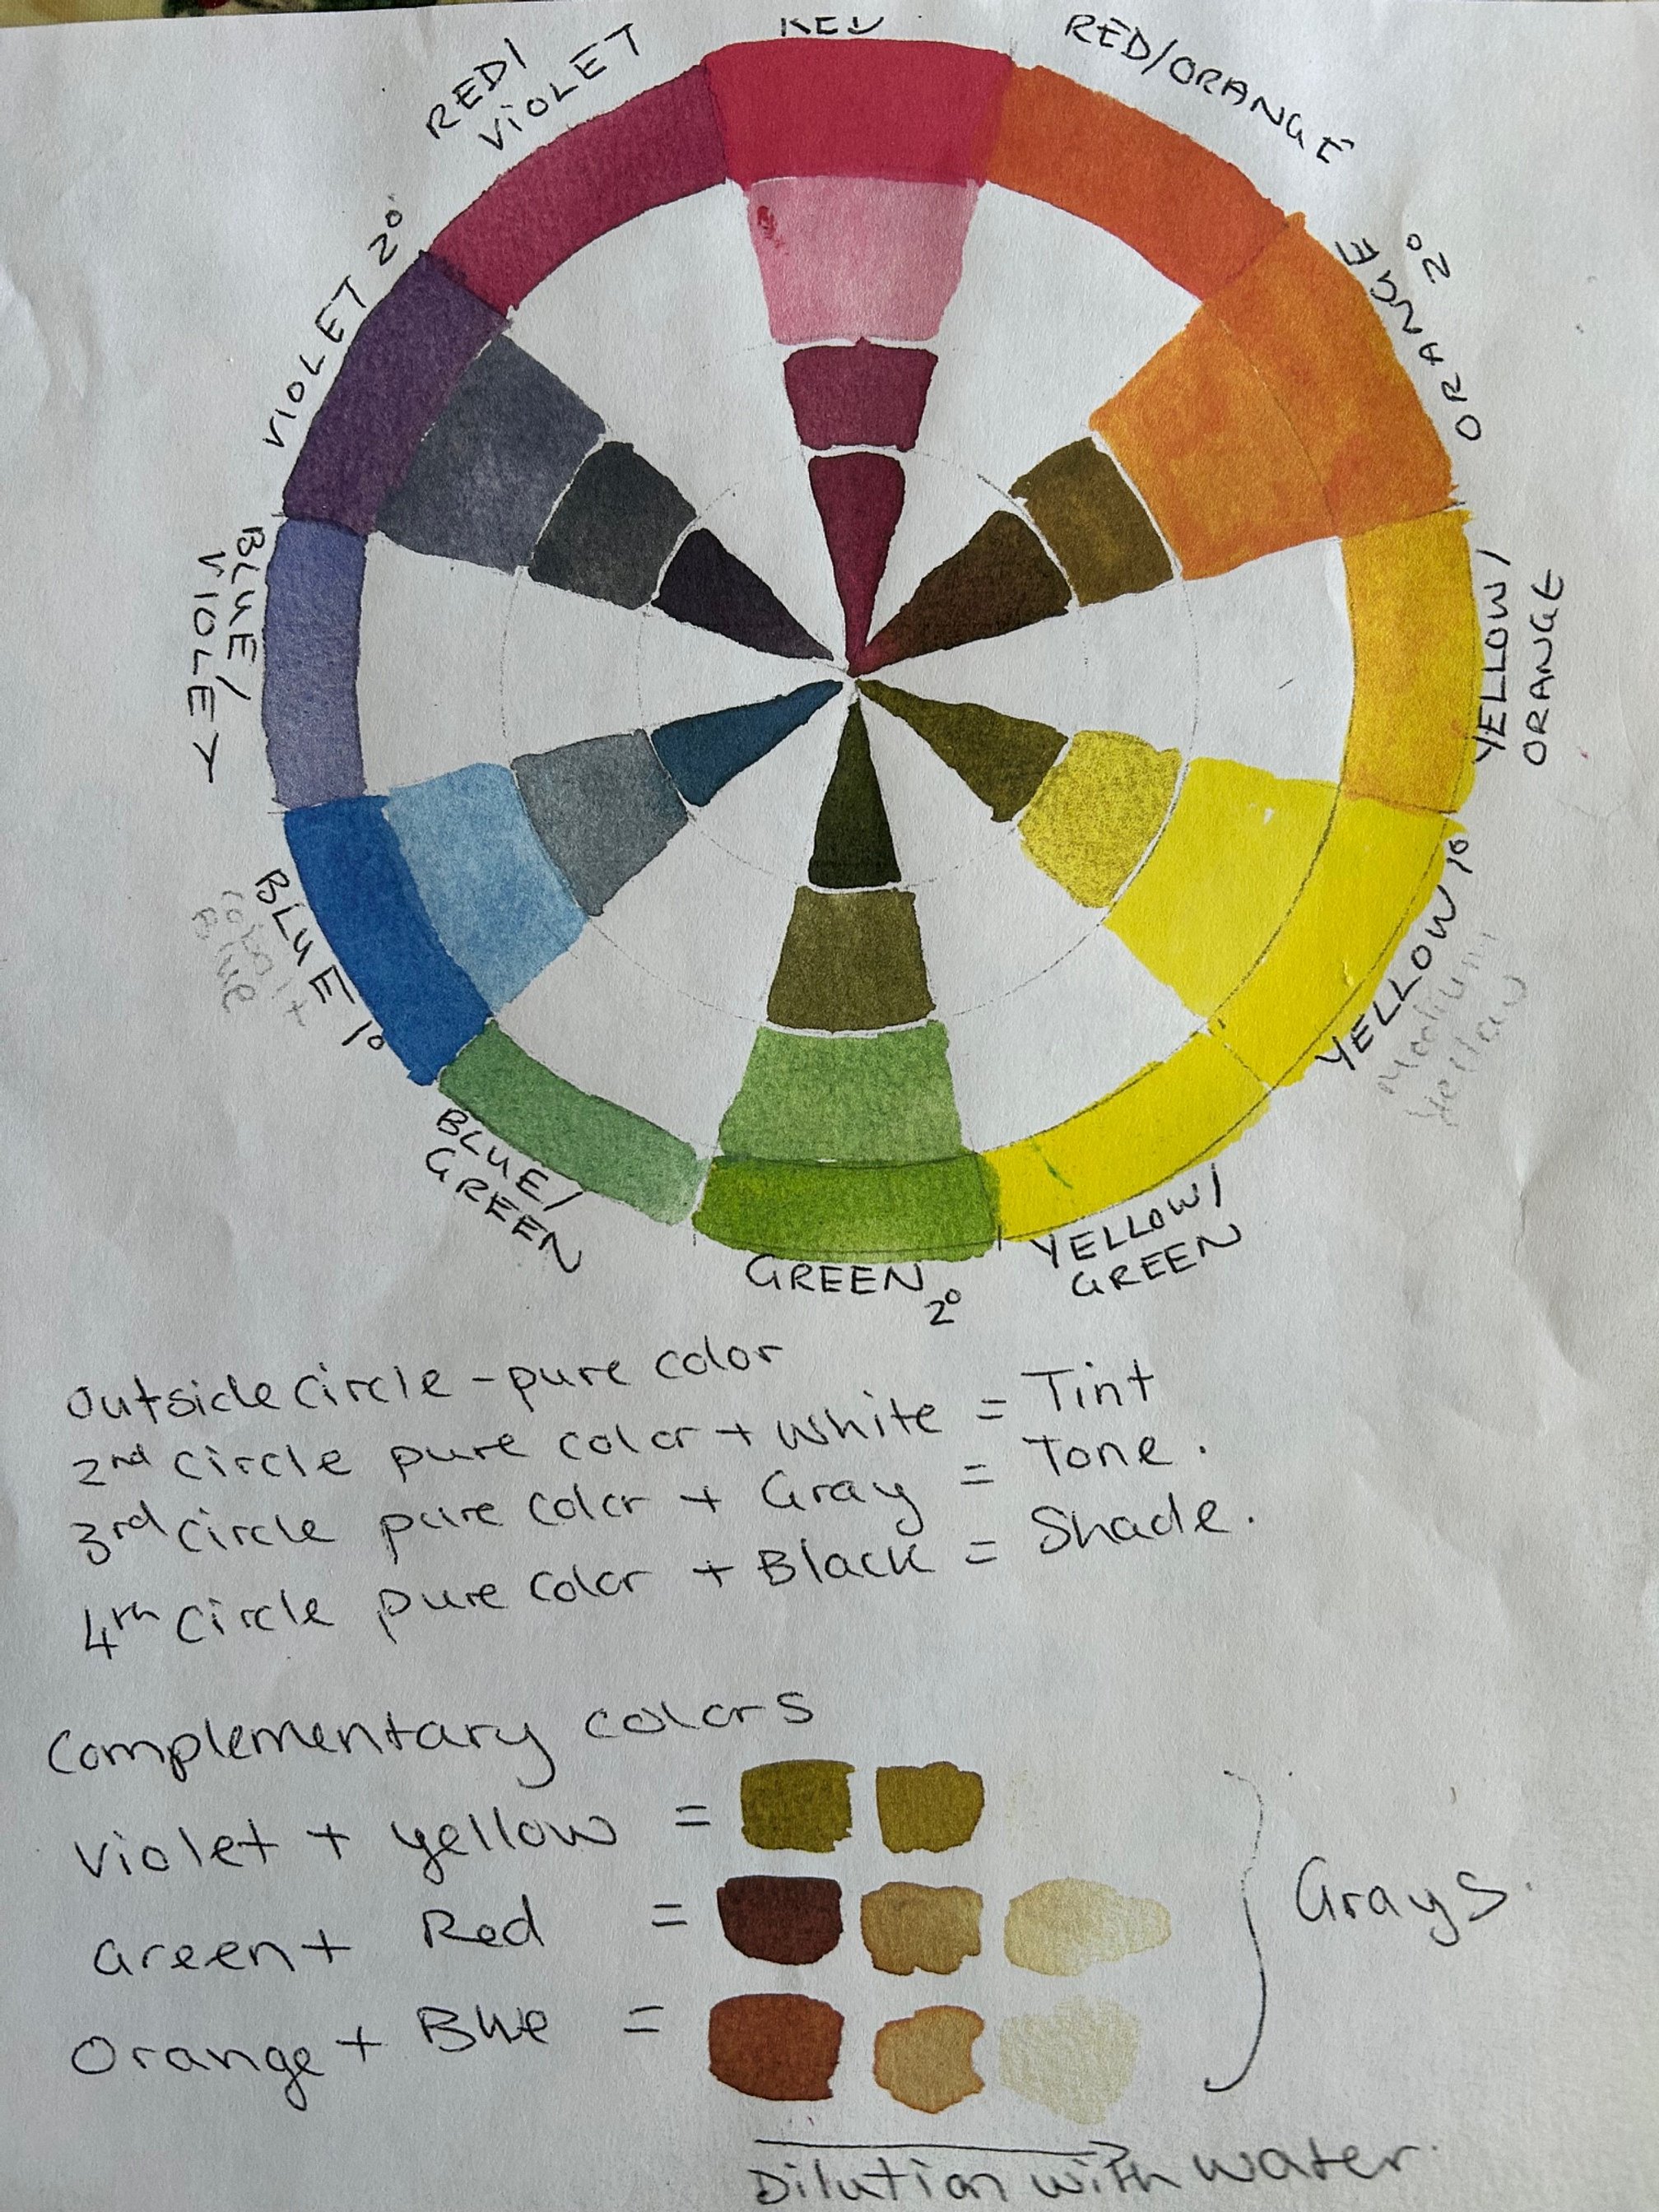 RED
RED/ORANGE
ORANGE 2°
YELLOW/
ORANGE
YELLOW 1°
Medium
Yellow
YELLOW/
GREEN
GREEN 2°
BLUE/
GREEN
BLUE 1°
Cobalt
Blue
BLUE/
VIOLET
VIOLET 2°
RED/
VIOLET
Outside circle - pure color
2nd circle pure color + White = Tint
3rd circle pure color + Gray = Tone.
4th circle pure color + Black = Shade.
Complementary colors
Violet + yellow =
Green + Red =
Orange + Blue =
Grays.
Dilution with water.